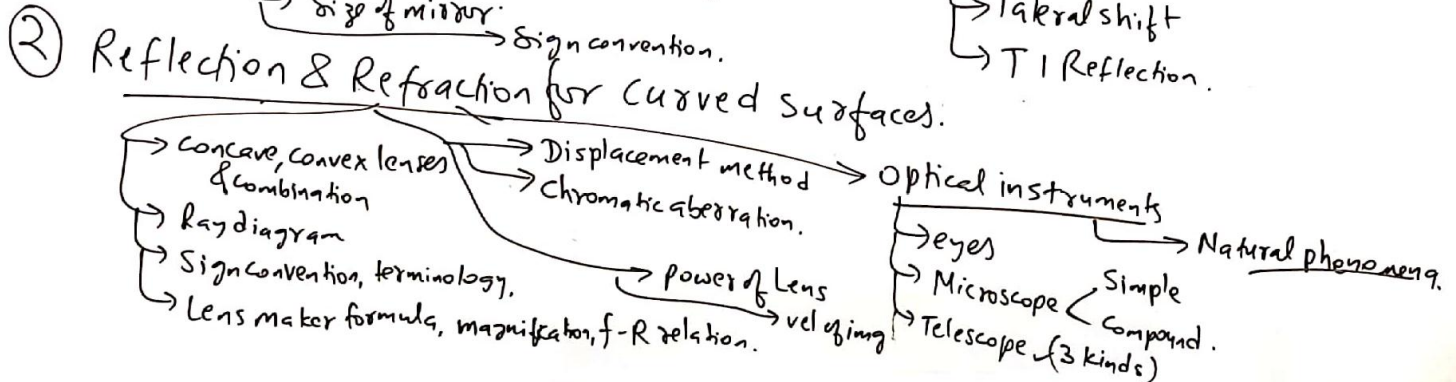 → Size of mirror.
→ Sign convention.
→ lateral shift
→ T I Reflection.
② Reflection & Refraction for curved surfaces.
→ Concave, convex lenses
& combination
→ Ray diagram
→ Sign convention, terminology.
→ Lens maker formula, magnification, f-R relation.
→ Displacement method
→ Chromatic aberration.
→ power of Lens
→ vel of img
→ Optical instruments
→ eyes
→ Microscope < Simple
Compound.
→ Telescope (3 kinds)
→ Natural phenomena.